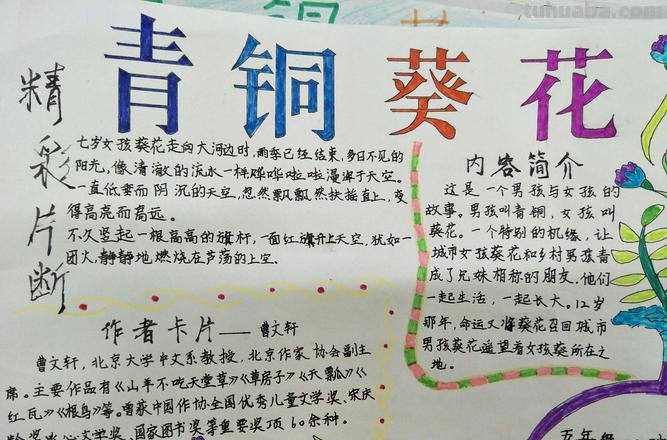 tuhuaba.com
青铜葵花
精彩片断
七岁女孩葵花走向大河边时,雨季已经结束,多日不见的
阳光,像清澈的流水一样哗哗啦啦漫泻于天空。
一直低垂而阴沉的天空,忽然飘飘然扶摇直上,变
得高亮而高远。
不久竖起一根高高的旗杆,一面红旗升上天空,犹如一
团火,静静地燃烧在芦荡的上空.
内容简介
这是一个男孩与女孩的
故事。男孩叫青铜,女孩叫
葵花。一个特别的机缘,让
城市女孩葵花和乡村男孩青
成了兄妹相称的朋友,他们
一起生活,一起长大。12岁
那年,命运又将葵花召回城市
男孩葵花遥望着女孩葵所在之
地.
作者卡片——曹文轩
曹文轩,北京大学中文系教授,北京作家协会副主
席。主要作品有《山羊不吃天堂草》《草房子》《天瓢》《
红瓦》《根鸟》等。曾获中国作协全国优秀儿童文学奖、宋庆
文学奖、国家图书奖等重要奖项60余种.
五年级